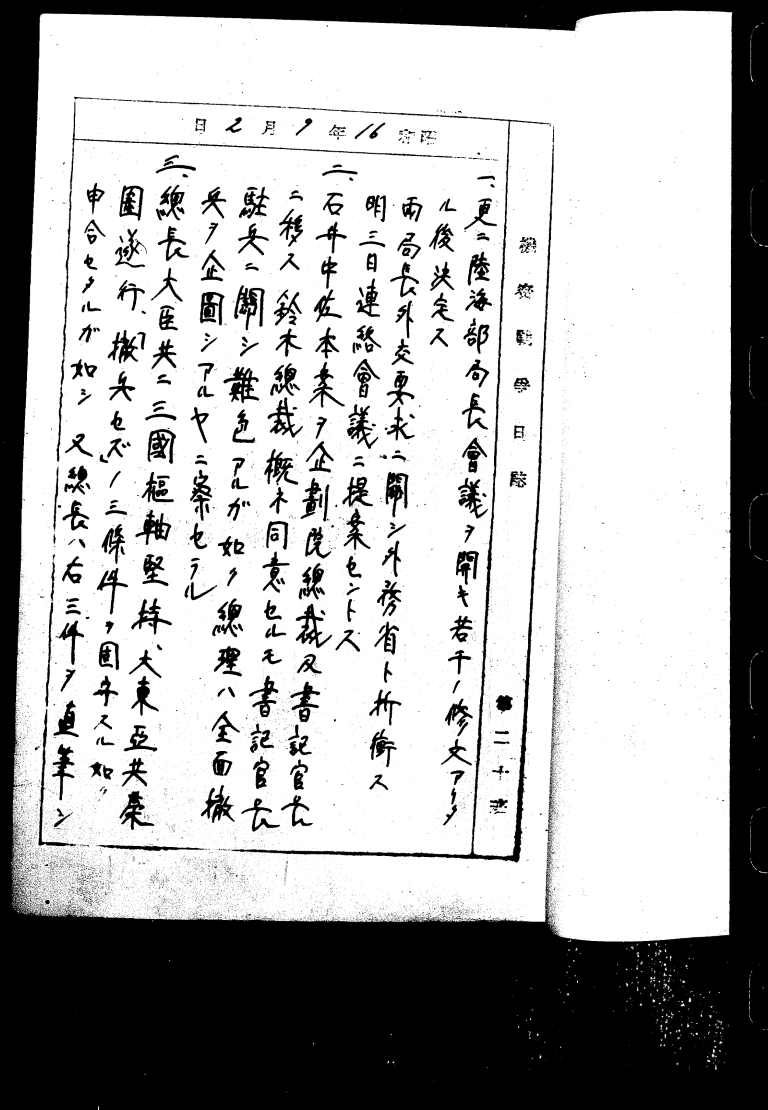 機密戰爭日誌
第二十班
昭和16年9月2日
一、更ニ陸海部局長會議ヲ開キ若干ノ修文アリタ
ル後決定ス
兩局長外交要求ニ關シ外務省ト折衝ス
明三日連絡會議ニ提案セントス
二、石井中佐本案ヲ企劃院總裁及書記官長
ニ移ス 鈴木總裁概ネ同意セルモ書記官長
駐兵ニ關シ難色アルガ如ク總理ハ全面撤
兵ヲ企圖シアルヤニ察セラル
三、總長大臣共ニ三國樞軸堅持、大東亞共榮
圏遂行、「撤兵セズ」ノ三條件ヲ固守スル如ク
申合セタルガ如シ 又總長ハ右三件ヲ直筆シ